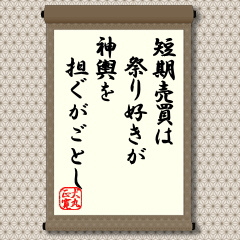 短期売買は
祭り好きが
神輿を
担ぐがごとし